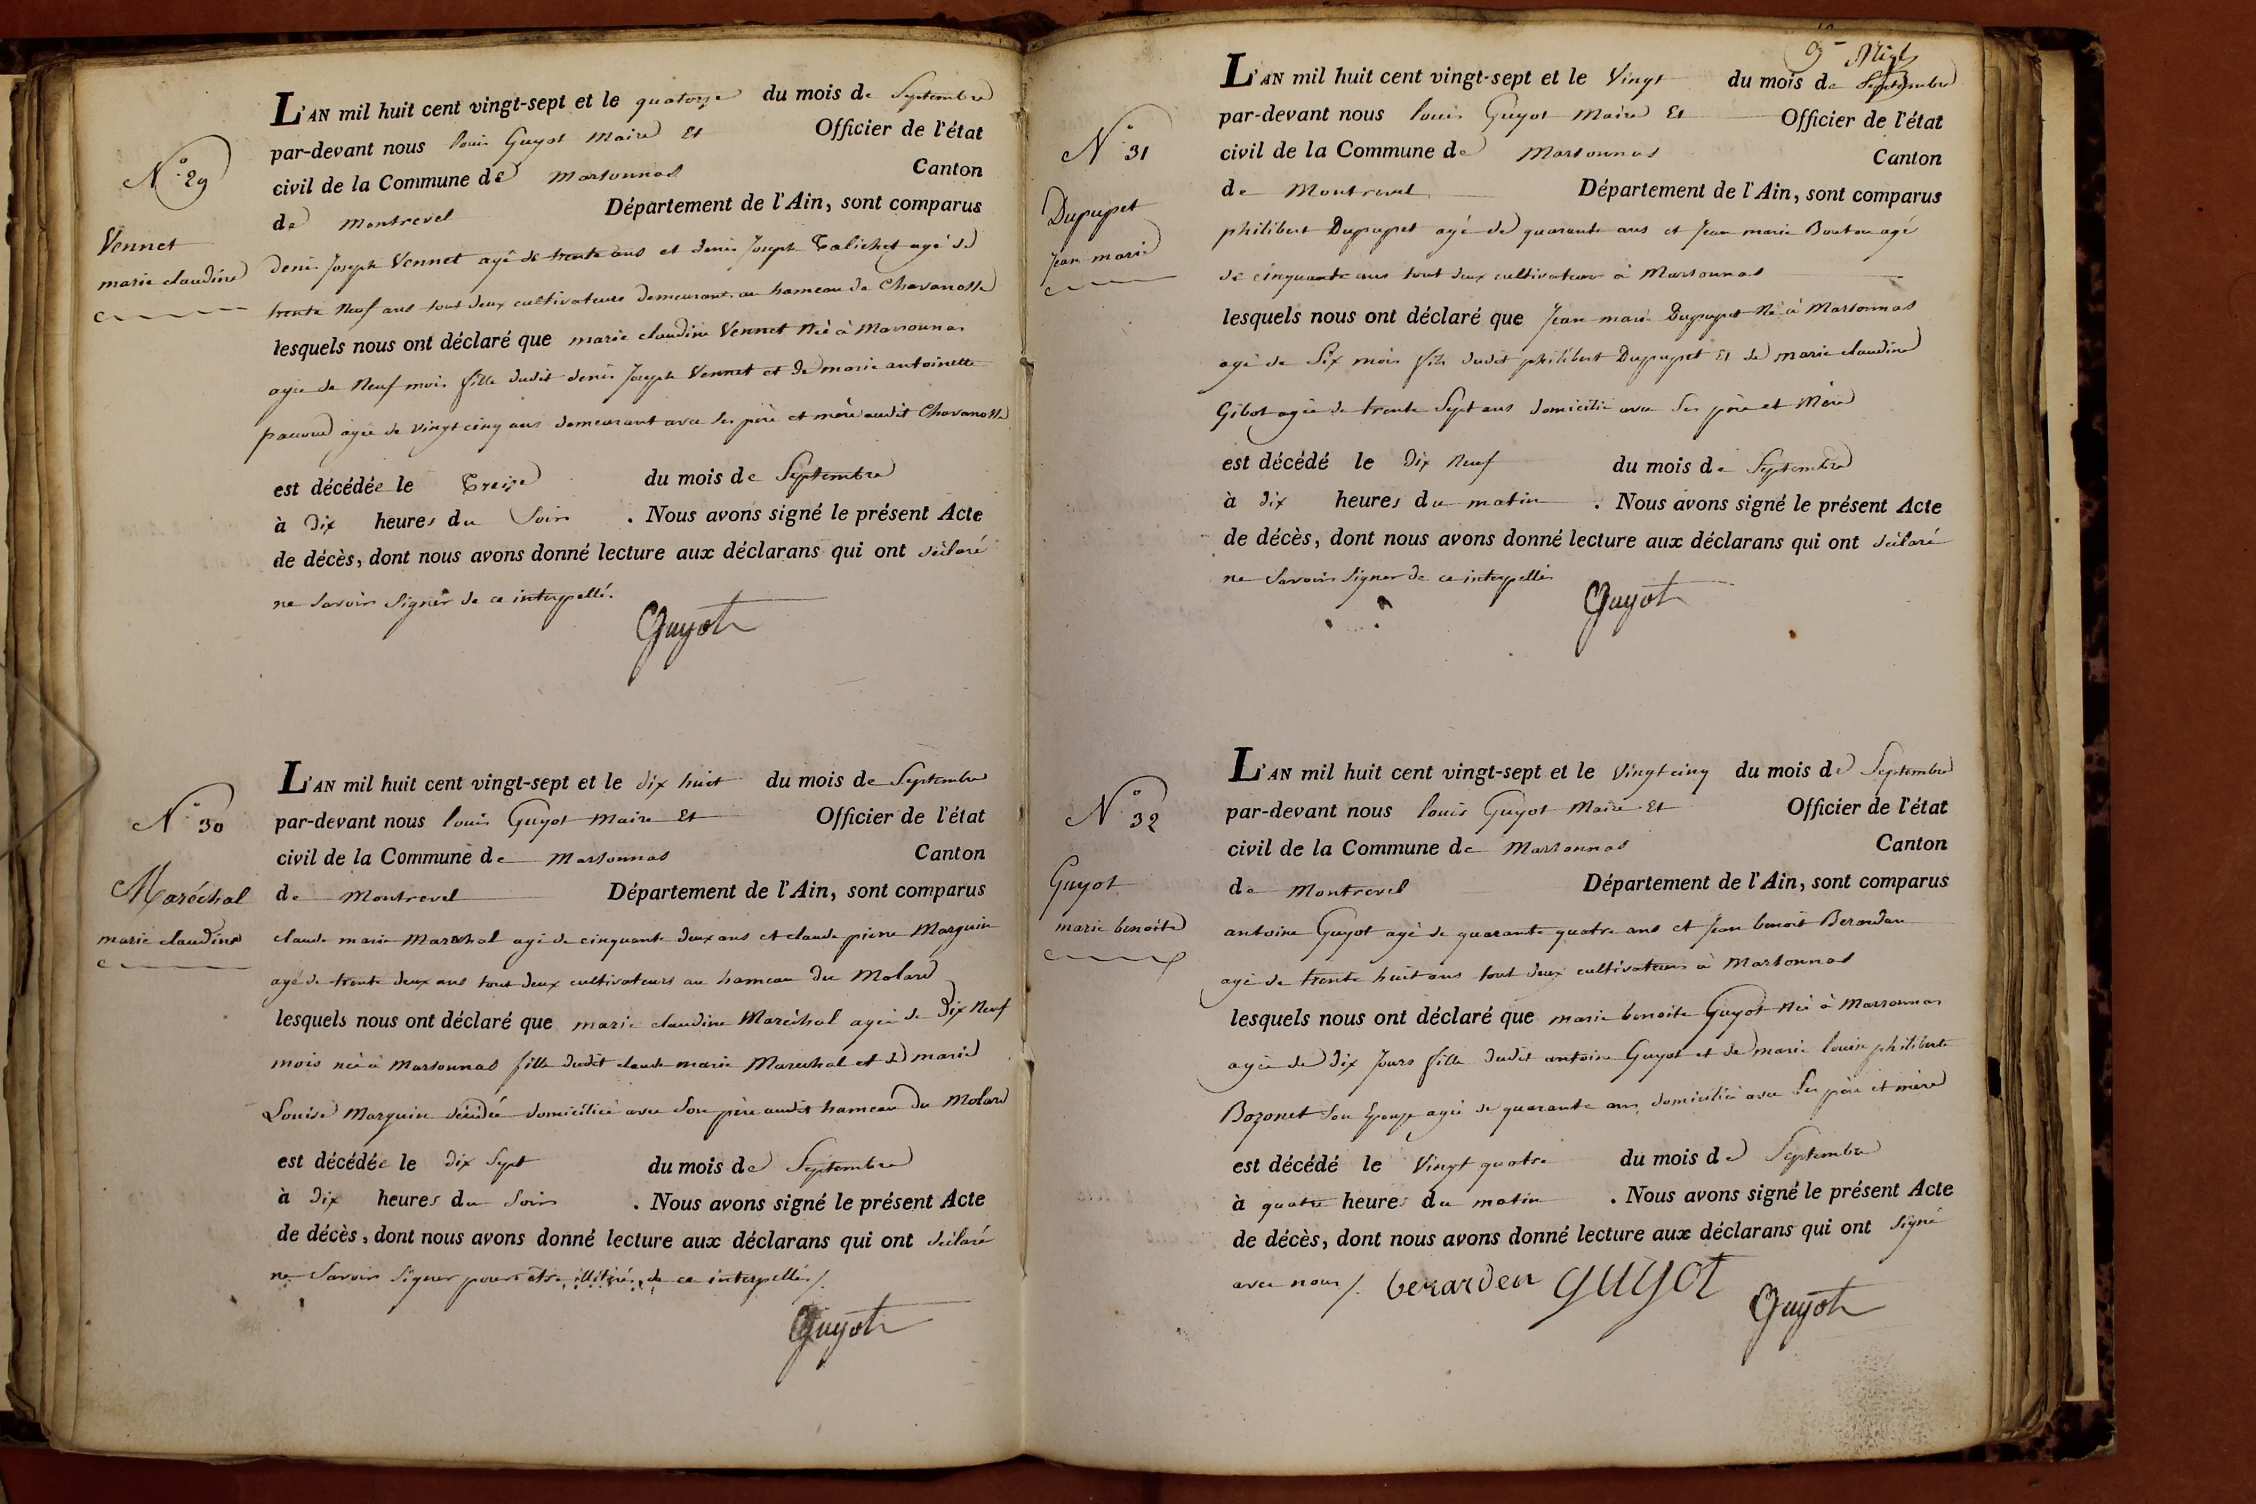 N° 29
Vennet
marie claudine
L'AN mil huit cent vingt-sept et le quatorze du mois de Septembre
par-devant nous louis Guyot Maire Et Officier de l'état
civil de la Commune de marsonnas Canton
de montrevel Département de l'Ain, sont comparus
denis Joseph Vennet agé de trente ans et denis Joseph Talichet agé de
trente Neuf ans tout deux cultivateurs demeurant au hameau de Chavanosse
lesquels nous ont déclaré que marie claudine Vennet Née à Marsonnas
agée de Neuf mois fille dudit denis Joseph Vennet et de marie antoinette
pacoud agée de vingt cinq ans demeurant avec ses père et mère audit Chavanosse
est décédée le Treize du mois de Septembre
à Dix heures du Soir . Nous avons signé le présent Acte
de décès, dont nous avons donné lecture aux déclarans qui ont déclaré
ne Savoir Signer de ce interpellé.
Guyot
N° 30
Maréchal
marie claudine
L'AN mil huit cent vingt-sept et le dix huit du mois de Septembre
par-devant nous louis Guyot Maire Et Officier de l'état
civil de la Commune de Marsonnas Canton
de Montrevel Département de l'Ain, sont comparus
claude marie Maréchal agé de cinquante deux ans et claude pierre Marguin
agé de trente deux ans tout deux cultivateurs au hameau du Molard
lesquels nous ont déclaré que marie claudine Maréchal agée de Dix Neuf
mois née à Marsonnas fille dudit claude marie Maréchal et de marie
Louise Marguin décédée domiciliée avec Son père audit hameau du Molard
est décédée le Dix Sept du mois de Septembre
à Dix heures du Soir . Nous avons signé le présent Acte
de décès, dont nous avons donné lecture aux déclarans qui ont déclaré
ne Savoir Signer pour être illitérés de ce interpellés /.
Guyot
N° 31
Dupupet
Jean marie
L'AN mil huit cent vingt-sept et le Vingt du mois de Septembre
par-devant nous louis Guyot Maire Et Officier de l'état
civil de la Commune de Marsonnas Canton
de Montrevel Département de l'Ain, sont comparus
philibert Dupupet agé de quarante ans et Jean marie Bouton agé
de cinquante ans tout deux cultivateurs à Marsonnas
lesquels nous ont déclaré que Jean marie Dupupet Né à Marsonnas
agé de Six mois fils dudit philibert Dupupet Et de marie claudine
Gibot agée de trente Sept ans domicilié avec Ses père et Mère
est décédé le Dix Neuf du mois de Septembre
à dix heures du matin . Nous avons signé le présent Acte
de décès, dont nous avons donné lecture aux déclarans qui ont déclaré
ne Savoir Signer de ce interpellés
Guyot
N° 32
Guyot
marie benoite
L'AN mil huit cent vingt-sept et le Vingt cinq du mois de Septembre
par-devant nous louis Guyot Maire Et Officier de l'état
civil de la Commune de Marsonnas Canton
de Montrevel Département de l'Ain, sont comparus
antoine Guyot agé de quarante quatre ans et Jean benoit Berardan
agé de trente huit ans tout deux cultivateurs à Marsonnas
lesquels nous ont déclaré que marie benoite Guyot Née à Marsonnas
agée de Dix Jours fille dudit antoine Guyot et de marie louise philiberte
Bozonet Son Epouse agée de quarante ans domiciliée avec Ses père et mère
est décédé le Vingt quatre du mois de Septembre
à quatre heures du matin . Nous avons signé le présent Acte
de décès, dont nous avons donné lecture aux déclarans qui ont Signé
avec nous /. berarden guyot
Guyot